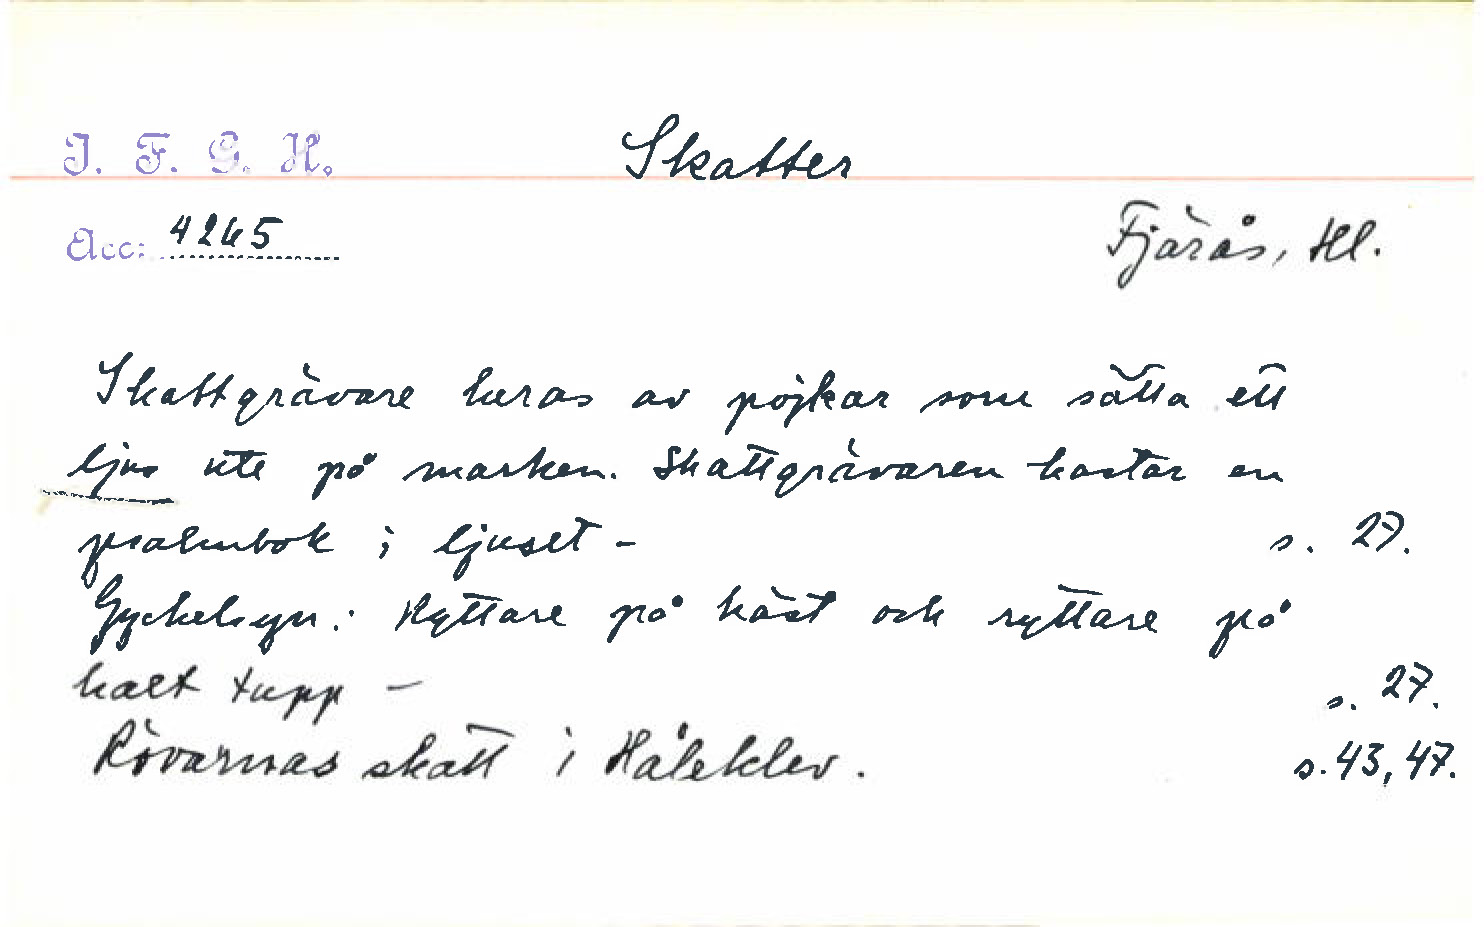 I. F. G. H. Skatter
Acc: 4265 Fjärås, Hl.
Skattgrävare luras av pojkar som sätta ett
ljus ute på marken. Skattgrävaren kastar en
psalmbok i ljuset - s. 27.
Gyckelsyn: Ryttare på häst och ryttare på
halt tupp - s. 27.
Rövarnas skatt i Håleklev. s. 43, 47.